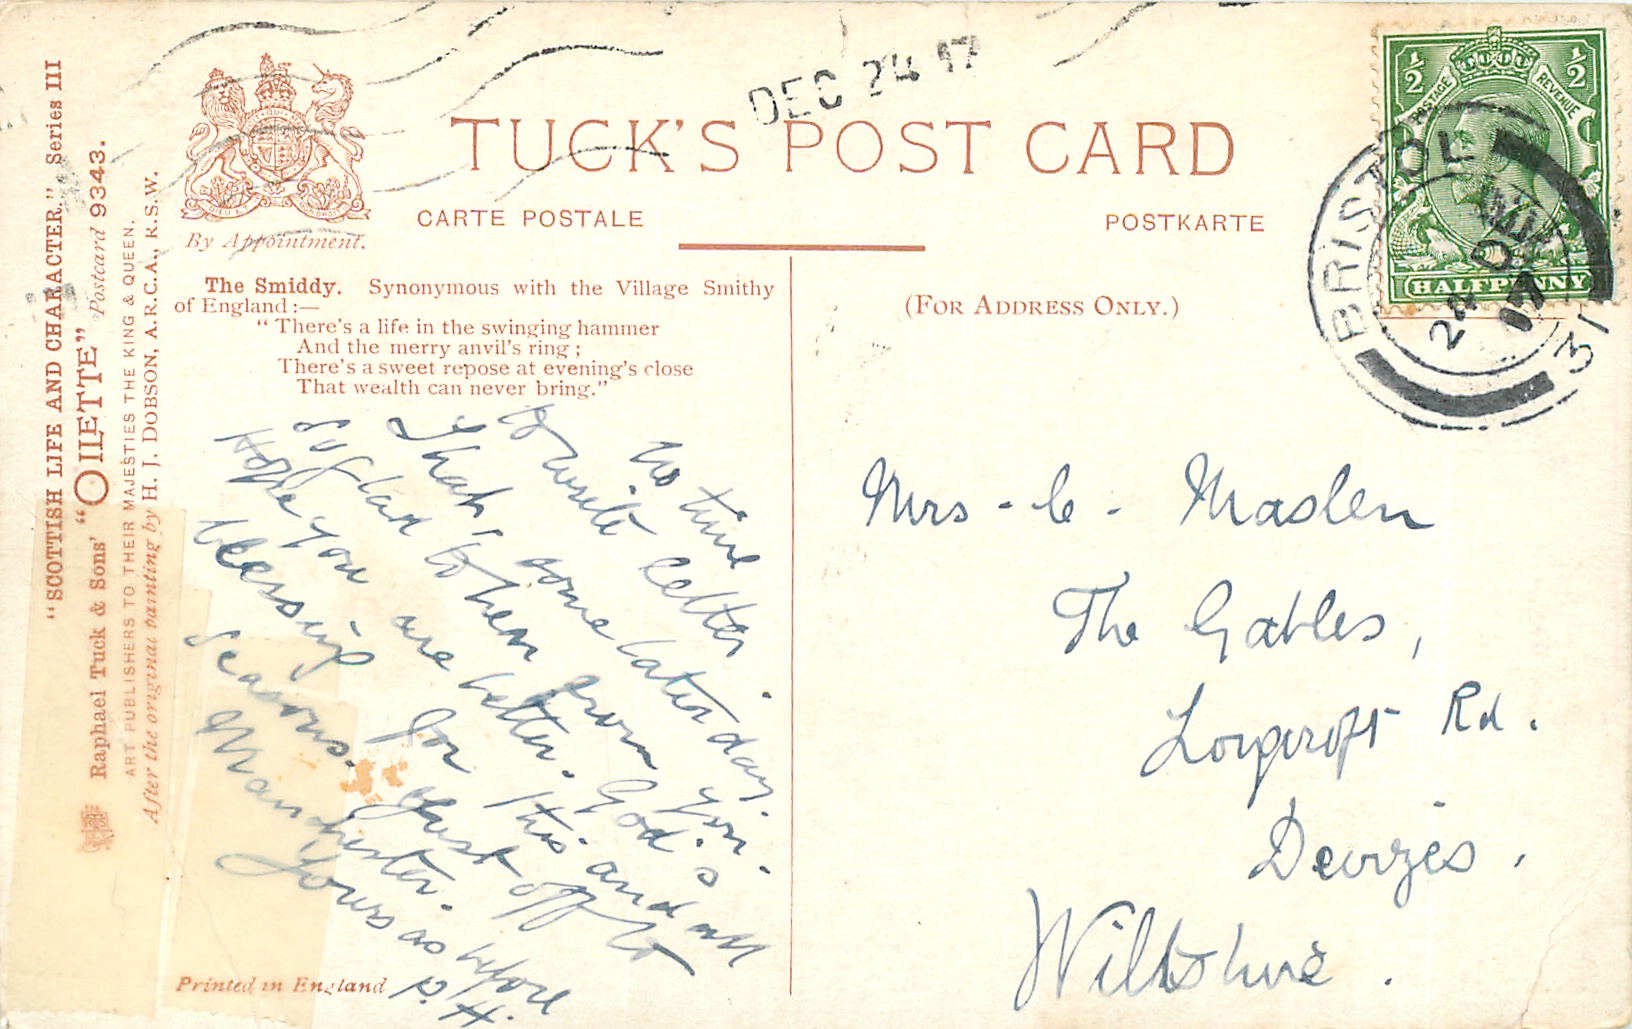 "SCOTTISH LIFE AND CHARACTER." Series III
Raphael Tuck & Sons' "OILETTE" Postcard 9343.
ART PUBLISHERS TO THEIR MAJESTIES THE KING & QUEEN.
After the original painting by H. J. DOBSON, A.R.C.A., R.S.W.
By Appointment.
DEC 24 17
TUCK'S POST CARD
CARTE POSTALE
POSTKARTE
The Smiddy. Synonymous with the Village Smithy
of England:—
"There's a life in the swinging hammer
And the merry anvil's ring;
There's a sweet repose at evening's close
That wealth can never bring."
(FOR ADDRESS ONLY.)
POSTAGE REVENUE
½ ½
HALFPENNY
BRISTOL
24 DE
17
31
No time
to write letter
that, some later day.
So glad to hear from you.
Hope you are better. God's
blessing for this and all
Seasons. Just off to
Manchester.
Yours as before
Mrs - C - Maslen
The Gables,
Longcroft Rd.
Devizes.
Wiltshire.
Printed in England